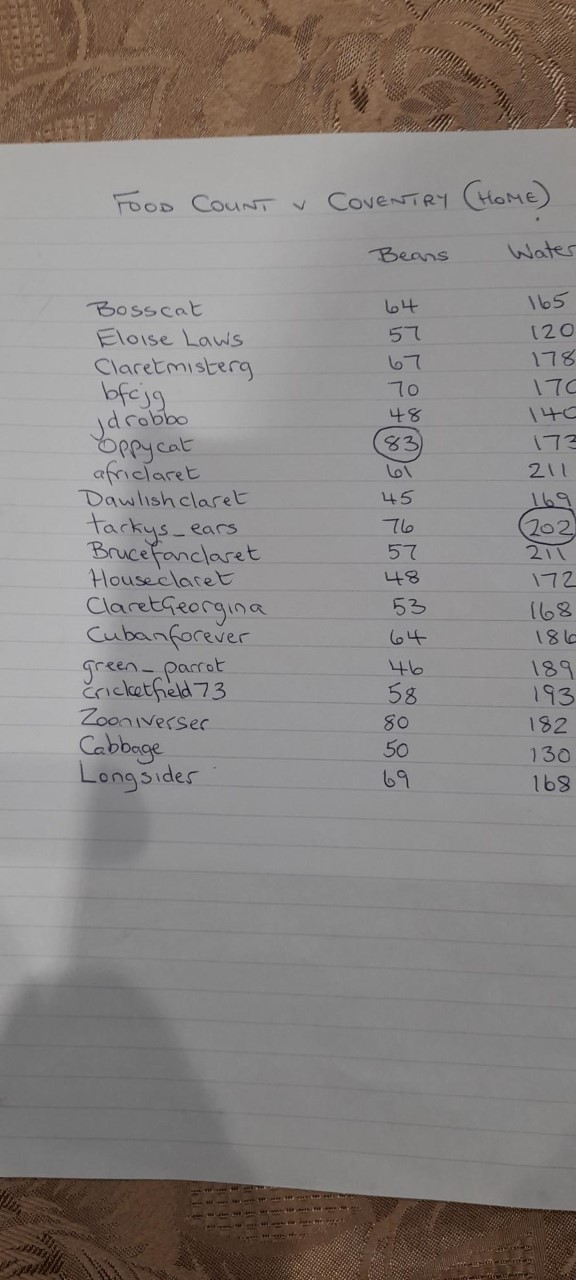 FOOD COUNT v COVENTRY (HOME)
Beans Water
Bosscat 64 165
Eloise Laws 57 120
Claretmisterg 67 178
bfcjg 70 170
jdrobbo 48 140
Oppycat 83 173
africlaret 61 211
Dawlishclaret 45 169
tackys_ears 76 202
Brucefanclaret 57 211
Houseclaret 48 172
ClaretGeorgina 53 168
Cubanforever 64 186
green_parrot 46 189
cricketfield73 58 193
Zooniverser 80 182
Cabbage 50 130
Longsider 69 168